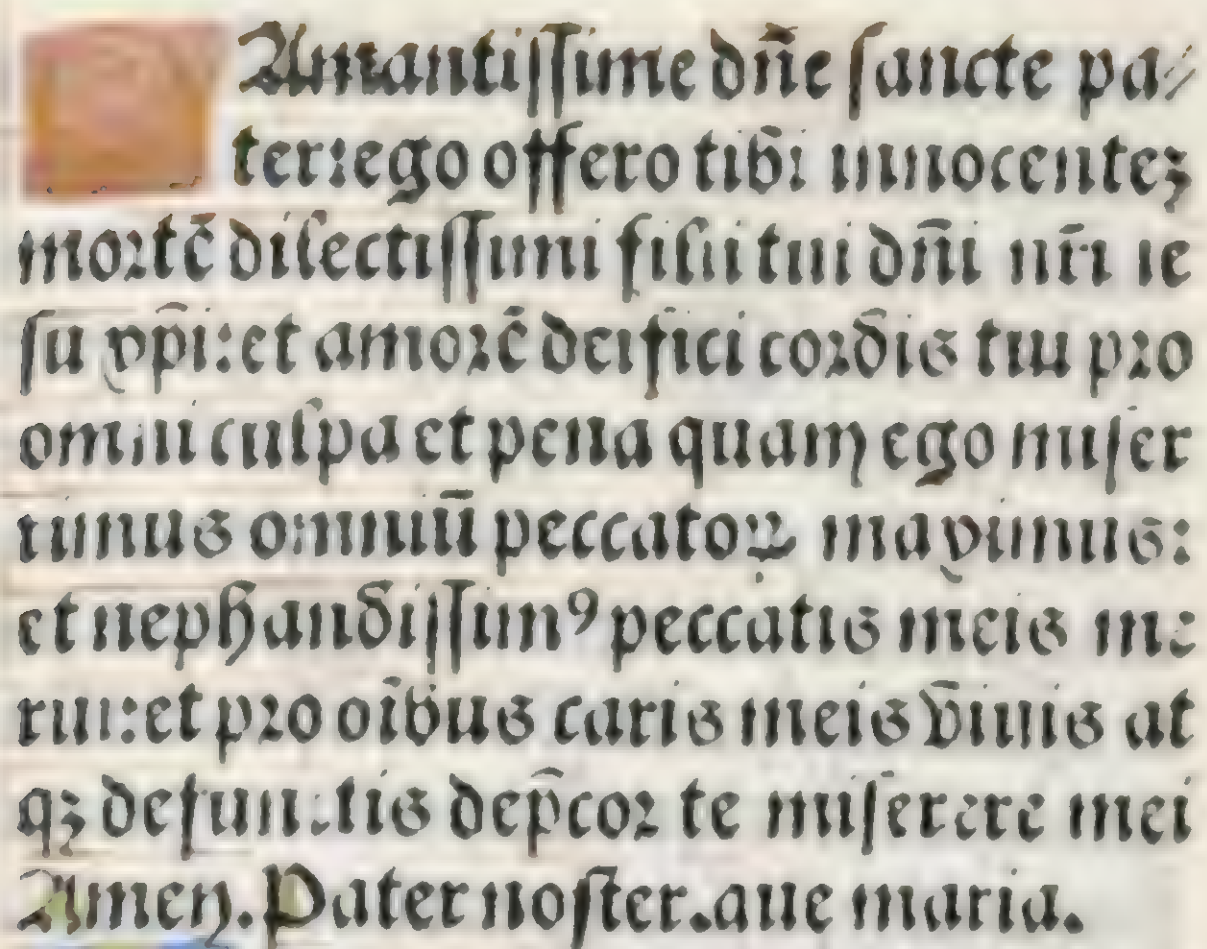 Amantissime dn̄e sancte pa⸗
ter:ego offero tibi innocentez
mortē dilectissimi filii tui dn̄i nr̄i ie
su xp̄i:et amorē deifici cordis tui pro
omni culpa et pena quam ego miser
rimus omniū peccatoꝝ maximus:
et nephandissimꝰ peccatis meis me
rui:et pro oībus caris meis viuis at
qꝫ defunctis dep̄cor te miserere mei
Amen.Pater noster.aue maria.